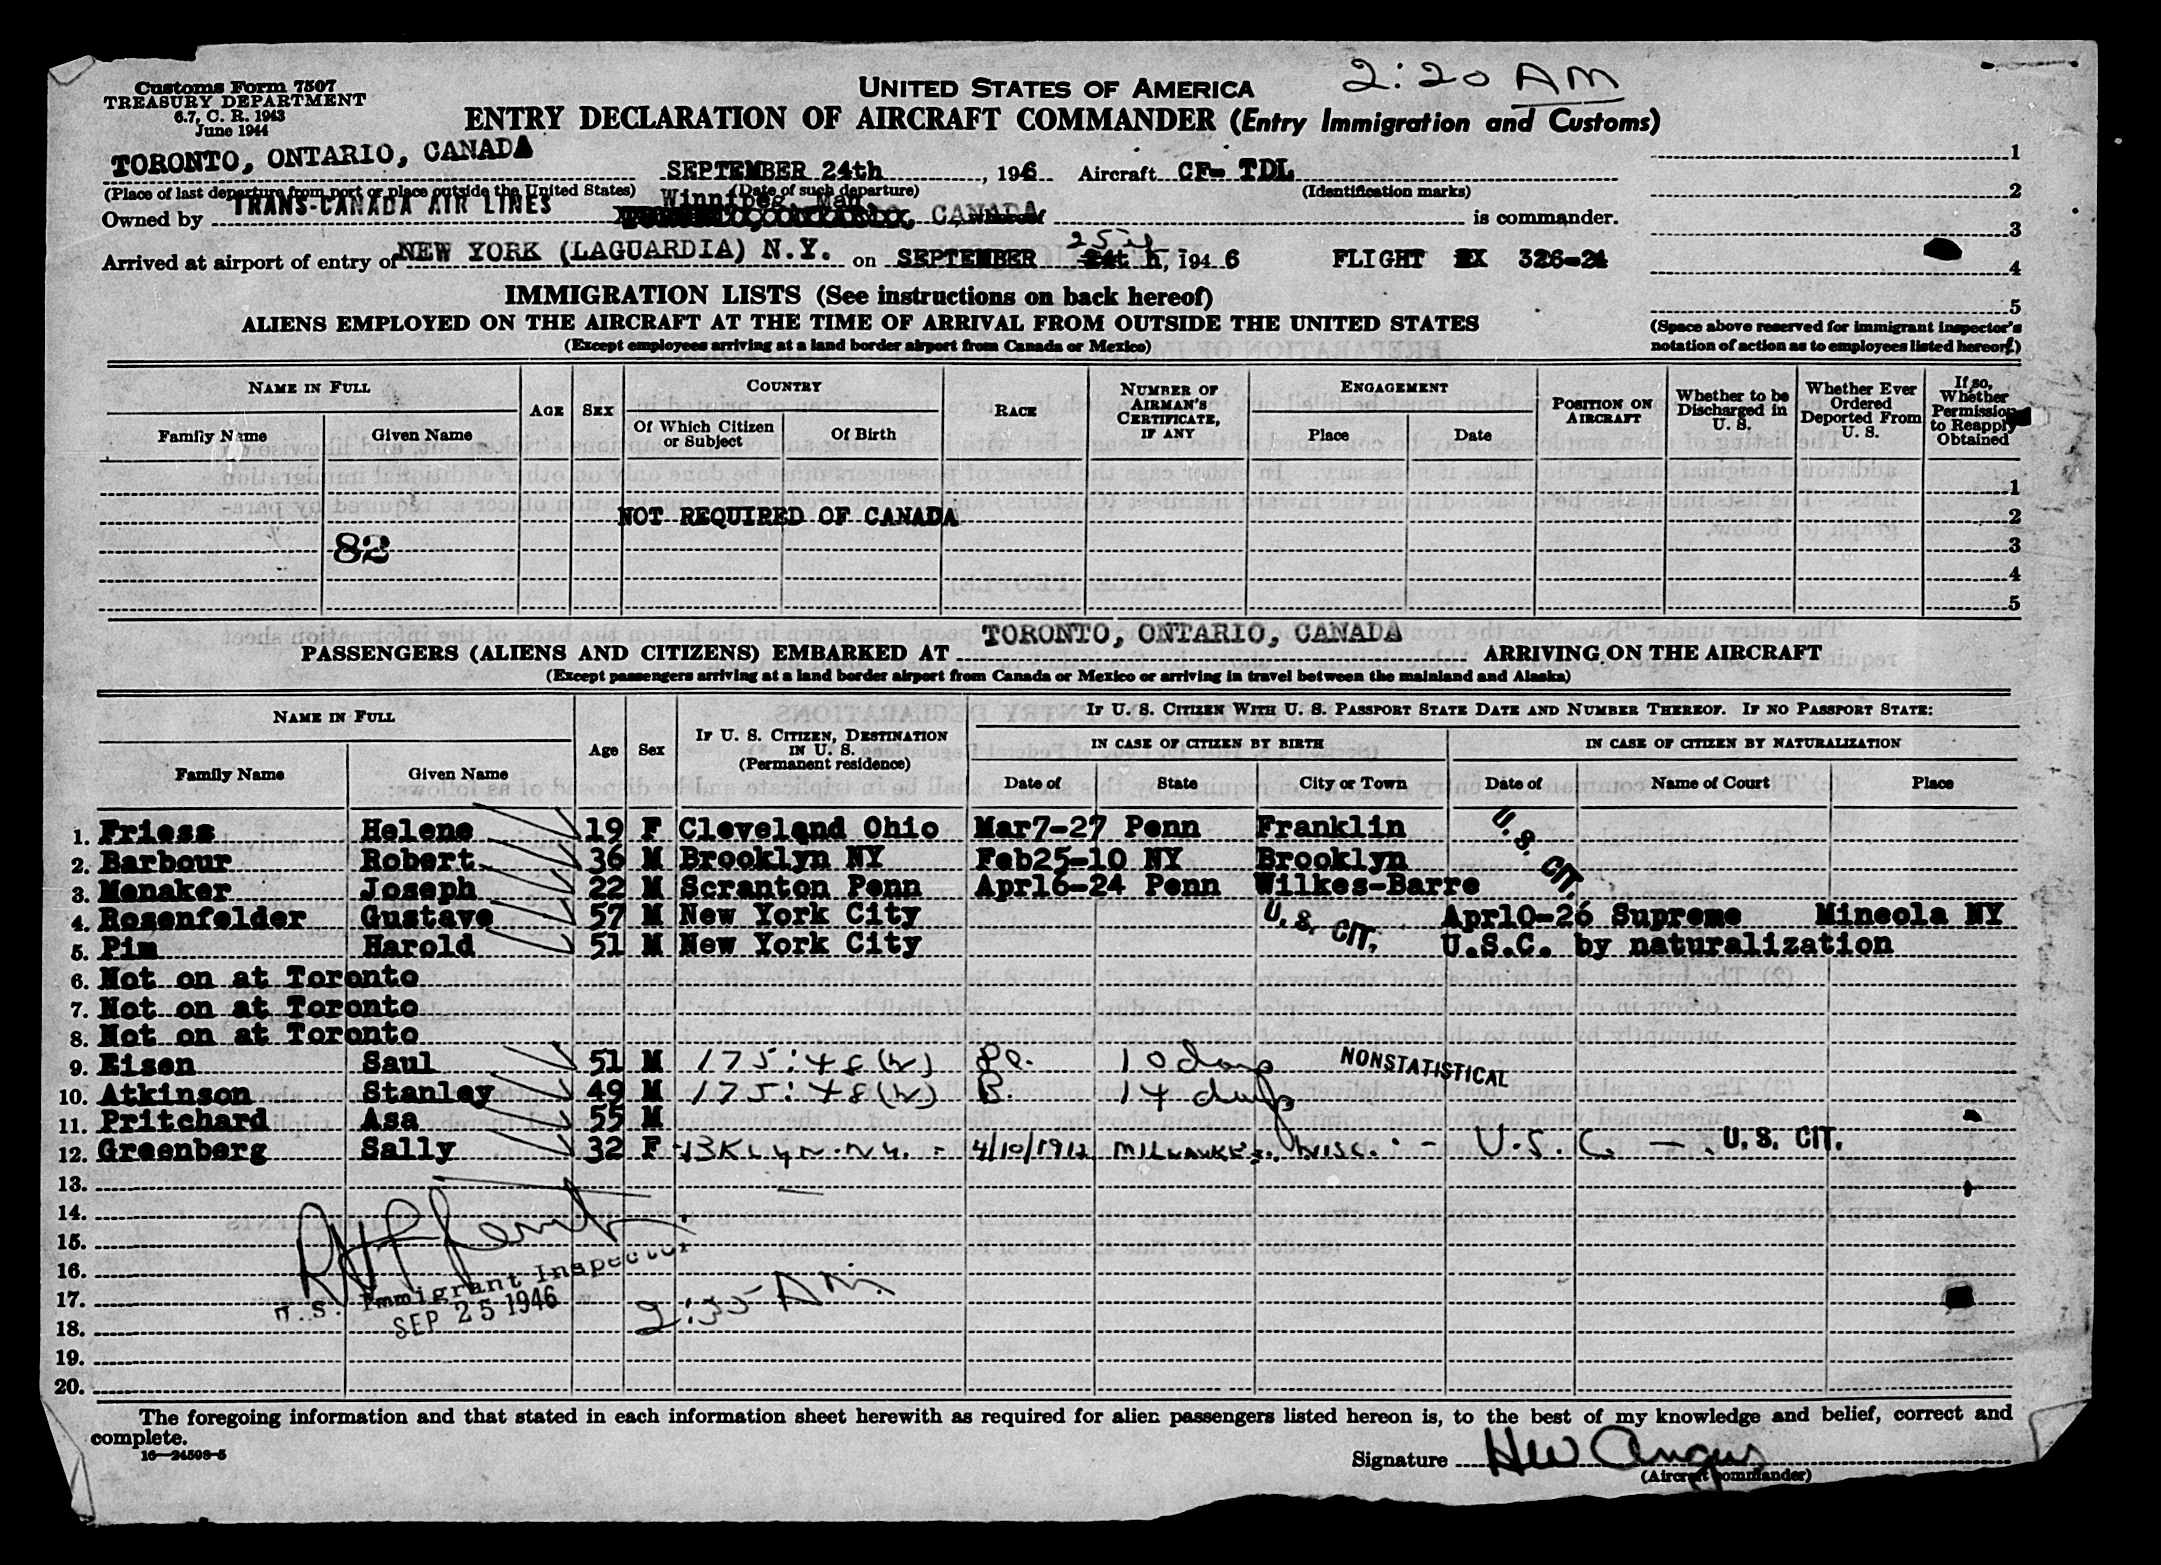 Customs Form 7507
TREASURY DEPARTMENT
6.7, C. R. 1943
June 1944
UNITED STATES OF AMERICA
2:20 AM
ENTRY DECLARATION OF AIRCRAFT COMMANDER (Entry Immigration and Customs)
TORONTO, ONTARIO, CANADA SEPTEMBER 24th, 1946 Aircraft CF- TDL
(Place of last departure from port or place outside the United States) (Date of such departure) (Identification marks)
Winnipeg, Man
Owned by TRANS-CANADA AIR LINES TORONTO, ONTARIO, CANADA, whereof is commander.
25th
Arrived at airport of entry of NEW YORK (LAGUARDIA) N.Y. on SEPTEMBER 24th, 1946 FLIGHT EX 326-24
1
2
3
4
5
(Space above reserved for immigrant inspector's notation of action as to employees listed hereon.)
IMMIGRATION LISTS (See instructions on back hereof)
ALIENS EMPLOYED ON THE AIRCRAFT AT THE TIME OF ARRIVAL FROM OUTSIDE THE UNITED STATES
(Except employees arriving at a land border airport from Canada or Mexico)
NAME IN FULL
Family Name Given Name
AGE SEX
COUNTRY
Of Which Citizen or Subject Of Birth
RACE
NUMBER OF AIRMAN'S CERTIFICATE, IF ANY
ENGAGEMENT
Place Date
POSITION ON AIRCRAFT
Whether to be Discharged in U. S.
Whether Ever Ordered Deported From U. S.
If so, Whether Permission to Reapply Obtained
1
NOT REQUIRED OF CANADA 2
82 3
4
5
TORONTO, ONTARIO, CANADA
PASSENGERS (ALIENS AND CITIZENS) EMBARKED AT ARRIVING ON THE AIRCRAFT
(Except passengers arriving at a land border airport from Canada or Mexico or arriving in travel between the mainland and Alaska)
NAME IN FULL
Family Name Given Name
Age Sex
IF U. S. CITIZEN, DESTINATION IN U. S. (Permanent residence)
IF U. S. CITIZEN WITH U. S. PASSPORT STATE DATE AND NUMBER THEREOF. IF NO PASSPORT STATE:
IN CASE OF CITIZEN BY BIRTH IN CASE OF CITIZEN BY NATURALIZATION
Date of State City or Town Date of Name of Court Place
1. Friess Helene 19 F Cleveland Ohio Mar7-27 Penn Franklin
U. S. CIT.
2. Barbour Robert 36 M Brooklyn NY Feb25-10 NY Brooklyn
3. Menaker Joseph 22 M Scranton Penn Apr16-24 Penn Wilkes-Barre
4. Rosenfelder Gustave 57 M New York City U. S. CIT. Apr10-26 Supreme Mineola NY
5. Pim Harold 51 M New York City U.S.C. by naturalization
6. Not on at Toronto
7. Not on at Toronto
8. Not on at Toronto
9. Eisen Saul 51 M 175:48(W) 10 days NONSTATISTICAL
10. Atkinson Stanley 49 M 175:48(W) B. 14 days
11. Pritchard Asa 55 M
12. Greenberg Sally 32 F BKLYN.NY. - 4/10/1912 MILWAUKEE, WISC. - U.S.C. - U. S. CIT.
13.
14.
15.
16.
17.
18.
19.
20.
U. S. Immigrant Inspector
SEP 25 1946
2:35 AM.
The foregoing information and that stated in each information sheet herewith as required for alien passengers listed hereon is, to the best of my knowledge and belief, correct and
complete.
16—24508-5
Signature HW Angus
(Aircraft commander)